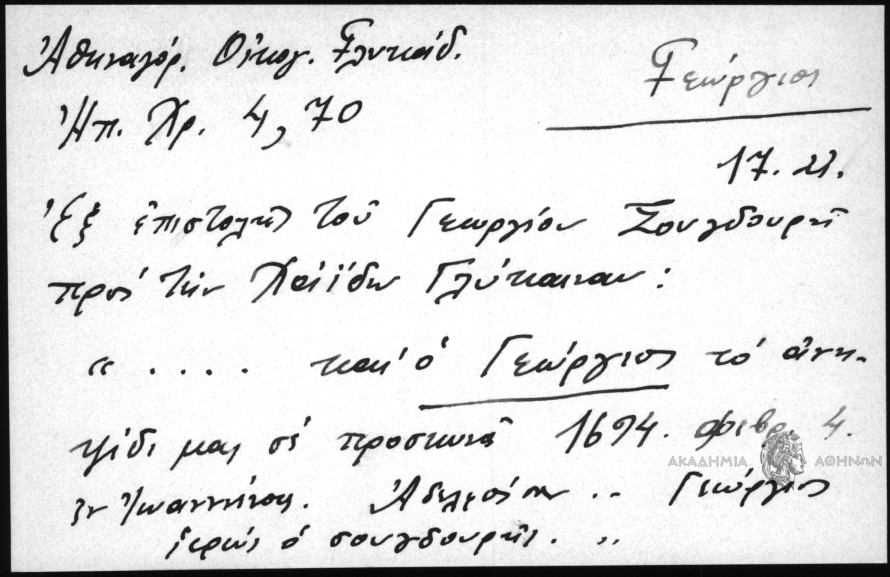 Ἀθηναγόρ. Οἰκογ. Γλυκάδ.
Γεώργιος
Ἠπ. Χρ. 4, 70
17. αι.
Ἐξ ἐπιστολῆς τοῦ Γεωργίου Σουγδουρῆ
πρὸς τὴν Χαΐδω Γλύκαιναν:
« . . . . καὶ ὁ Γεώργιος τὸ ἀνη-
ψίδι μας σὲ προσκυνᾶ 1694. Φεβρ. 4.
ἐν Ἰωαννίνοις. Ἀδελφός σου .. Γεώργιος
ἱερεὺς ὁ σουγδουρῆς. ..
ΑΚΑΔΗΜΙΑ ΑΘΗΝΩΝ